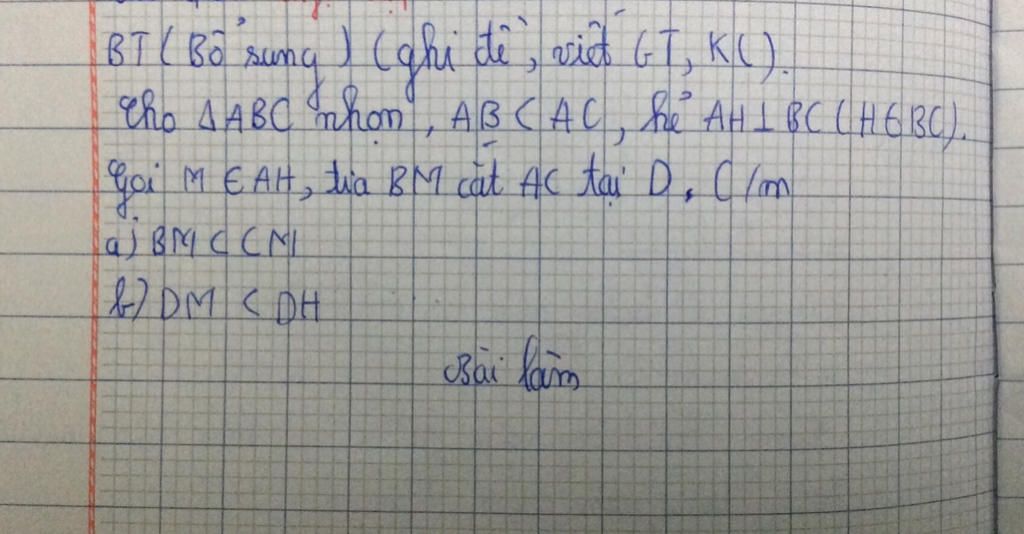 BT (Bổ sung) (ghi đề, viết GT, KL).
Cho ΔABC nhọn, AB < AC, kẻ AH ⊥ BC (H ∈ BC).
Gọi M ∈ AH, tia BM cắt AC tại D. C/m
a) BM < CM
b) DM < DH
Bài làm